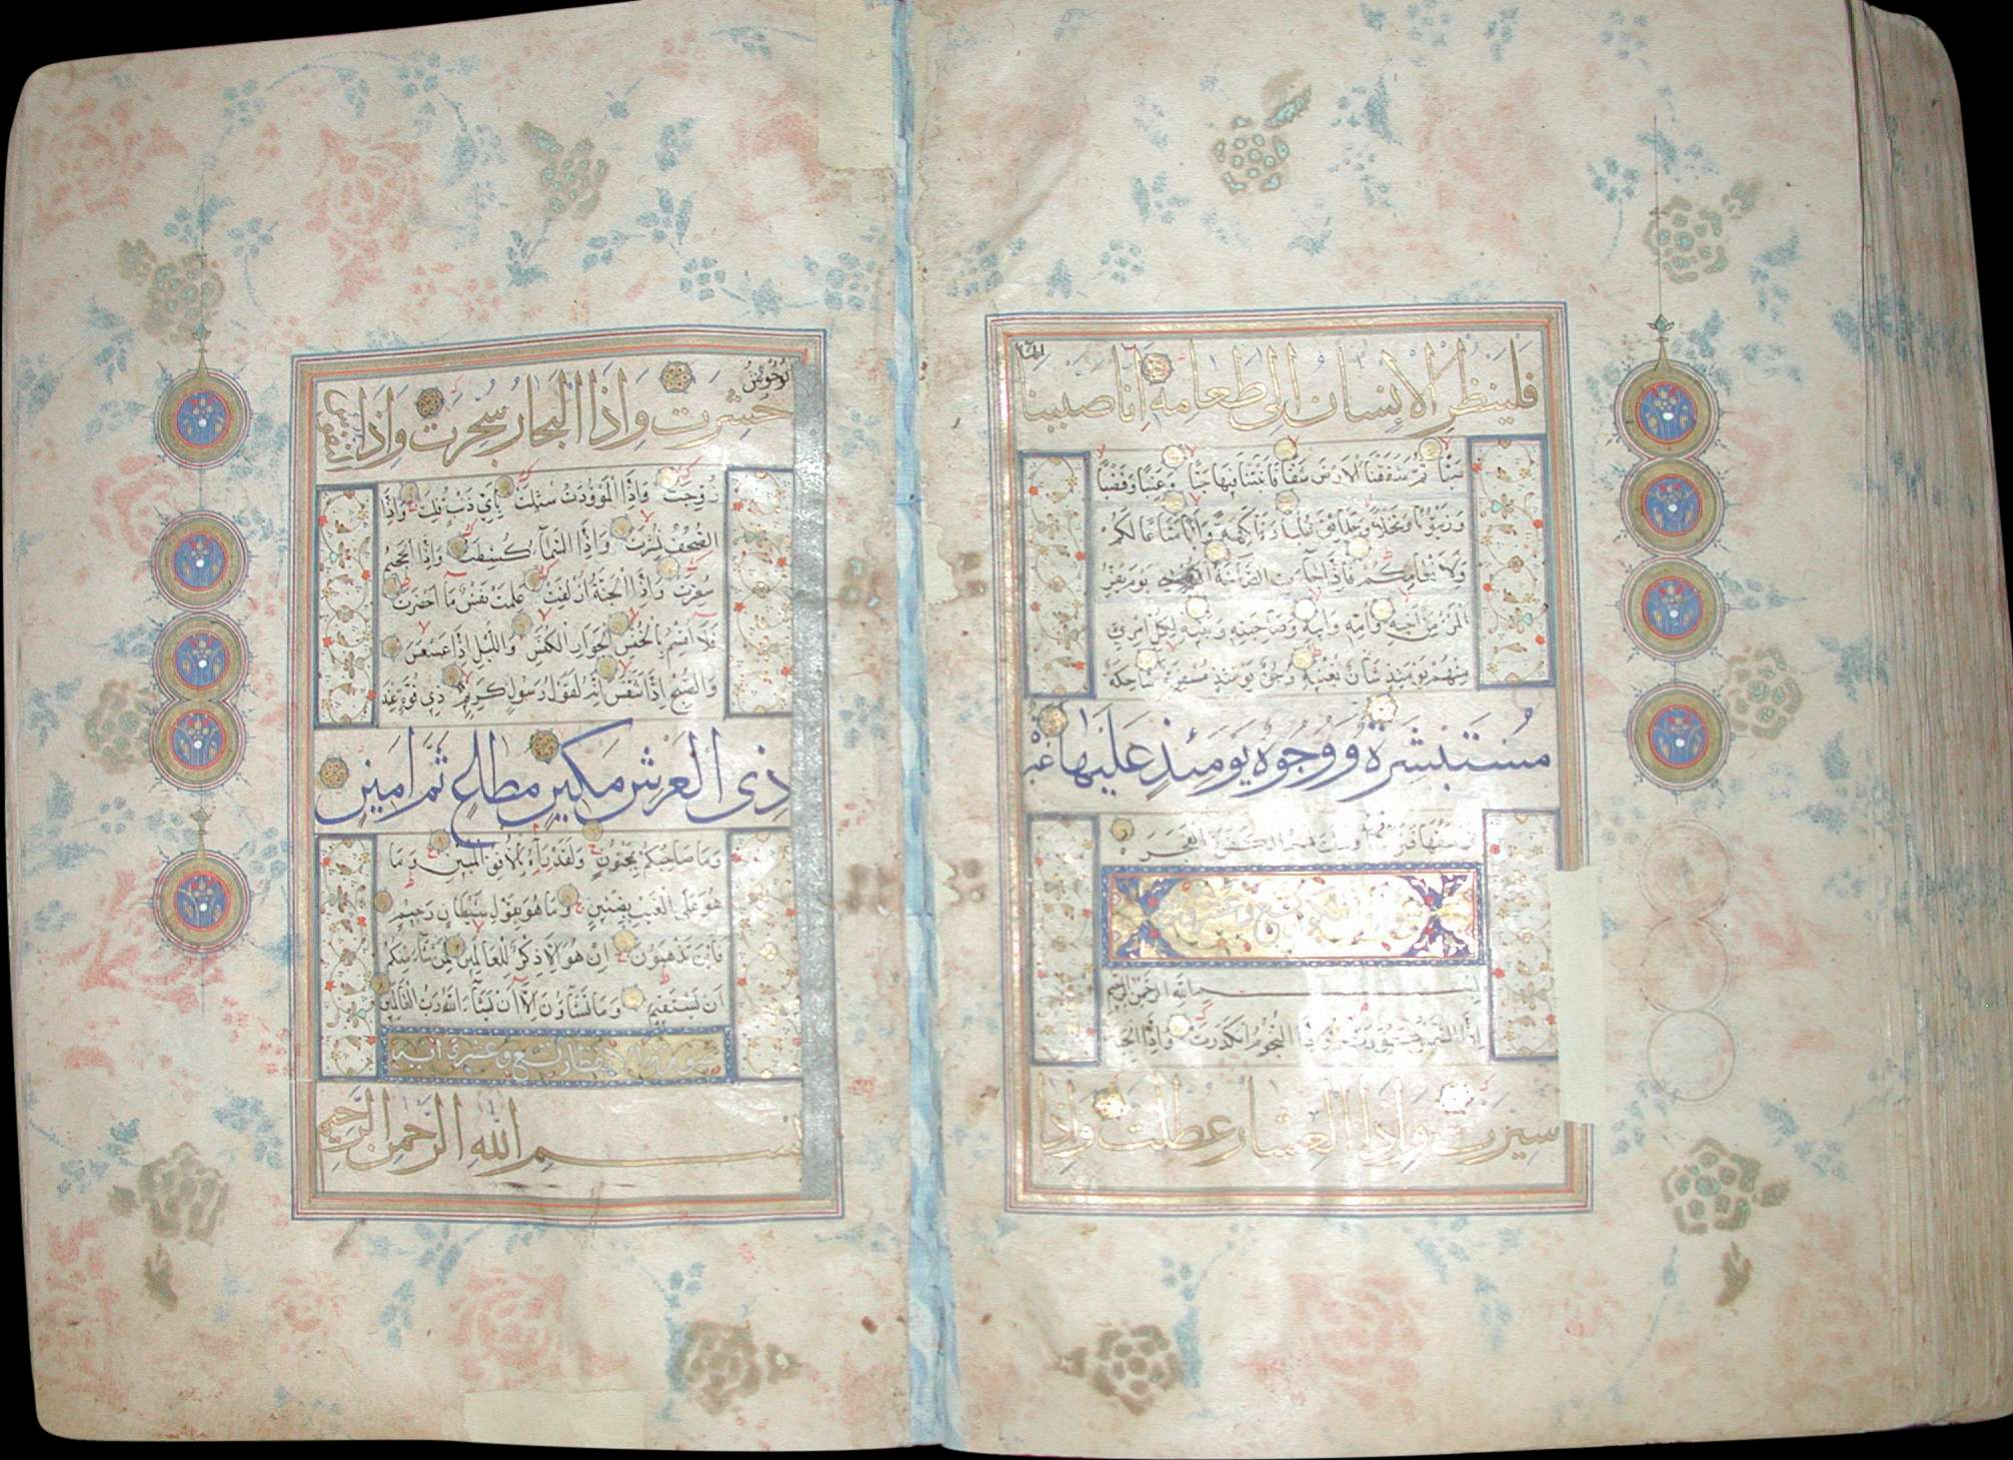 فلينظر الإنسان إلى طعامه أنا صببنا الماء
صبا ثم شققنا الأرض شقا فأنبتنا فيها حبا وعنبا وقضبا
وزيتونا ونخلا وحدائق غلبا وفاكهة وأبا متاعا لكم
ولأنعامكم فإذا جاءت الصاخة يوم يفر
المرء من أخيه وأمه وأبيه وصاحبته وبنيه لكل امرئ
منهم يومئذ شأن يغنيه وجوه يومئذ مسفرة ضاحكة
مستبشرة ووجوه يومئذ عليها غبرة
ترهقها قترة أولئك هم الكفرة الفجرة
بسم الله الرحمن الرحيم
إذا الشمس كورت وإذا النجوم انكدرت وإذا الجبال
سيرت وإذا العشار عطلت وإذا
الوحوش
حشرت وإذا البحار سجرت وإذا النفوس
زوجت وإذا الموؤدة سئلت بأي ذنب قتلت وإذا
الصحف نشرت وإذا السماء كشطت وإذا الجحيم
سعرت وإذا الجنة أزلفت علمت نفس ما أحضرت
فلا أقسم بالخنس الجوار الكنس والليل إذا عسعس
والصبح إذا تنفس إنه لقول رسول كريم ذي قوة عند
ذي العرش مكين مطاع ثم أمين
وما صاحبكم بمجنون ولقد رآه بالأفق المبين وما
هو على الغيب بضنين وما هو بقول شيطان رجيم
فأين تذهبون إن هو إلا ذكر للعالمين لمن شاء منكم
أن يستقيم وما تشاؤن إلا أن يشاء الله رب العالمين
سورة الانفطار تسع وعشرة آية
بسم الله الرحمن الرحيم